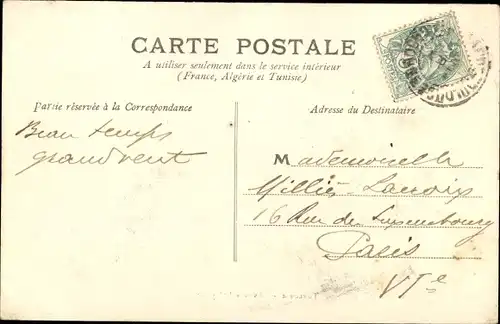 CARTE POSTALE
A utiliser seulement dans le service intérieur
(France, Algérie et Tunisie)
Partie réservée à la Correspondance
Adresse du Destinataire
Beau temps
grand vent
Mademoiselle
Millié Lacroix
16 Rue de Luxembourg
Paris
VIe